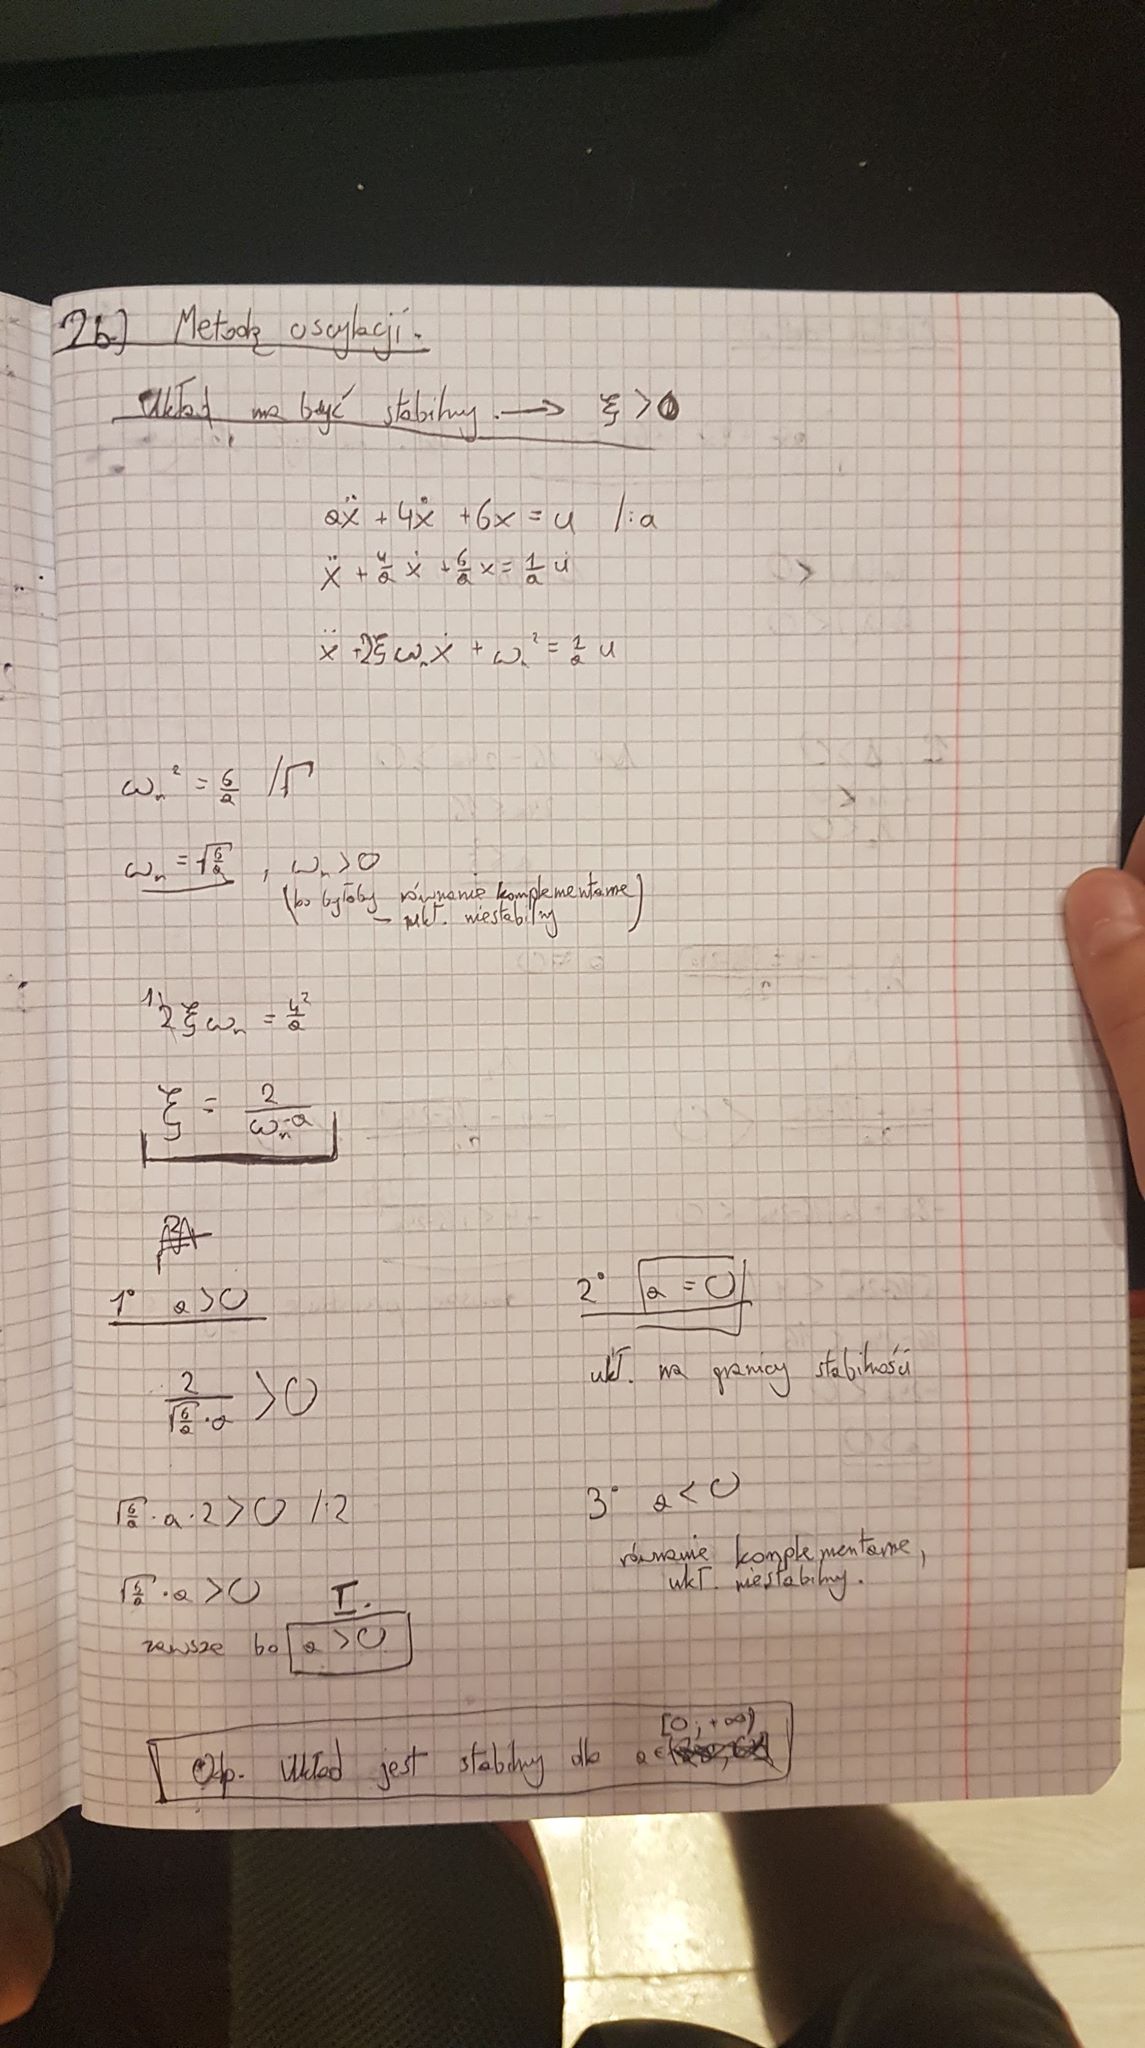 2b) Metodą oscylacji.
Układ ma być stabilny. → ξ > 0
aẍ + 4ẋ + 6x = u /:a
ẍ + 4/a ẋ + 6/a x = 1/a u
ẍ + 2ξωₙẋ + ωₙ² = 1/a u
ωₙ² = 6/a /√
ωₙ = √(6/a) , ωₙ > 0
(bo byłoby równanie komplementarne
– ukł. niestabilny)
2ξωₙ = 4/a
ξ = 2/(ωₙ·a)
1° a > 0
2/(√(6/a)·a) > 0
√(6/a)·a·2 > 0 /:2
√(6/a)·a > 0 I.
zawsze bo a > 0
2° a = 0
ukł. na granicy stabilności
3° a < 0
równanie komplementarne,
ukł. niestabilny.
Odp. Układ jest stabilny dla a ∈ [0; +∞)